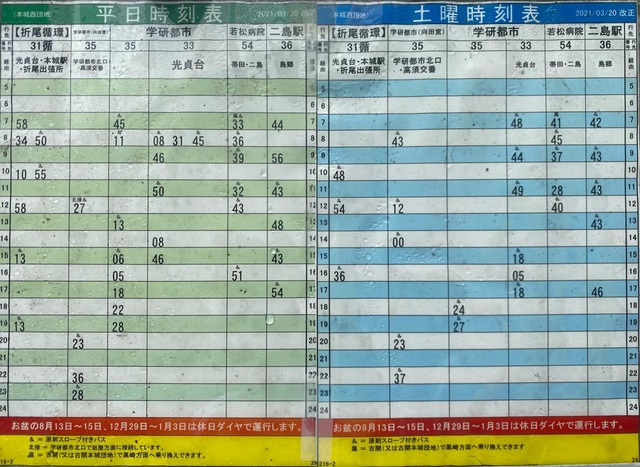 (本城西団地) 平日時刻表 2021/03/20 改正
行先 【折尾循環】 学研都市(向田営) 学研都市 若松病院 二島駅
行先番号 31循 35 35 33 54 36
経由 光貞台・本城駅・折尾出張所 学研都市北口・高須交番 光貞台 帯田・二島 島郷
5
6
7 58 45 33 44
8 34 50 11 08 31 45 36
9 46 39 56
10 10 55
11 50 32 43
12 58 27 43
13 13 48
14 08
15 13 06 46 43
16 05 51
17 18 54
18 22
19 13 28
20 23
21
22 36
23 28
24
お盆の8月13日~15日、12月29日~1月3日は休日ダイヤで運行します。
& = 原則スロープ付きバス
北接 = 学研都市北口で岩屋方面に接続しています。
= 古開(又は古開本城団地)で黒崎方面へ乗り換えできます。
(本城西団地) 土曜時刻表 2021/03/20 改正
行先 【折尾循環】 学研都市(向田営) 学研都市 若松病院 二島駅
31循 35 35 33 54 36
経由 光貞台・本城駅・折尾出張所 学研都市北口・高須交番 光貞台 帯田・二島 島郷
5
6
7 48 41 42
8 43 45
9 44 37 43
10 48
11 49 28 43
12 54 12 40
13 43
14 00
15 18 43
16 36 05
17 18 46
18 24
19 27
20 23
21
22 37
23
24
お盆の8月13日~15日、12月29日~1月3日は休日ダイヤで運行します。
& = 原則スロープ付きバス
= 古開(又は古開本城団地)で黒崎方面へ乗り換えできます
216-2